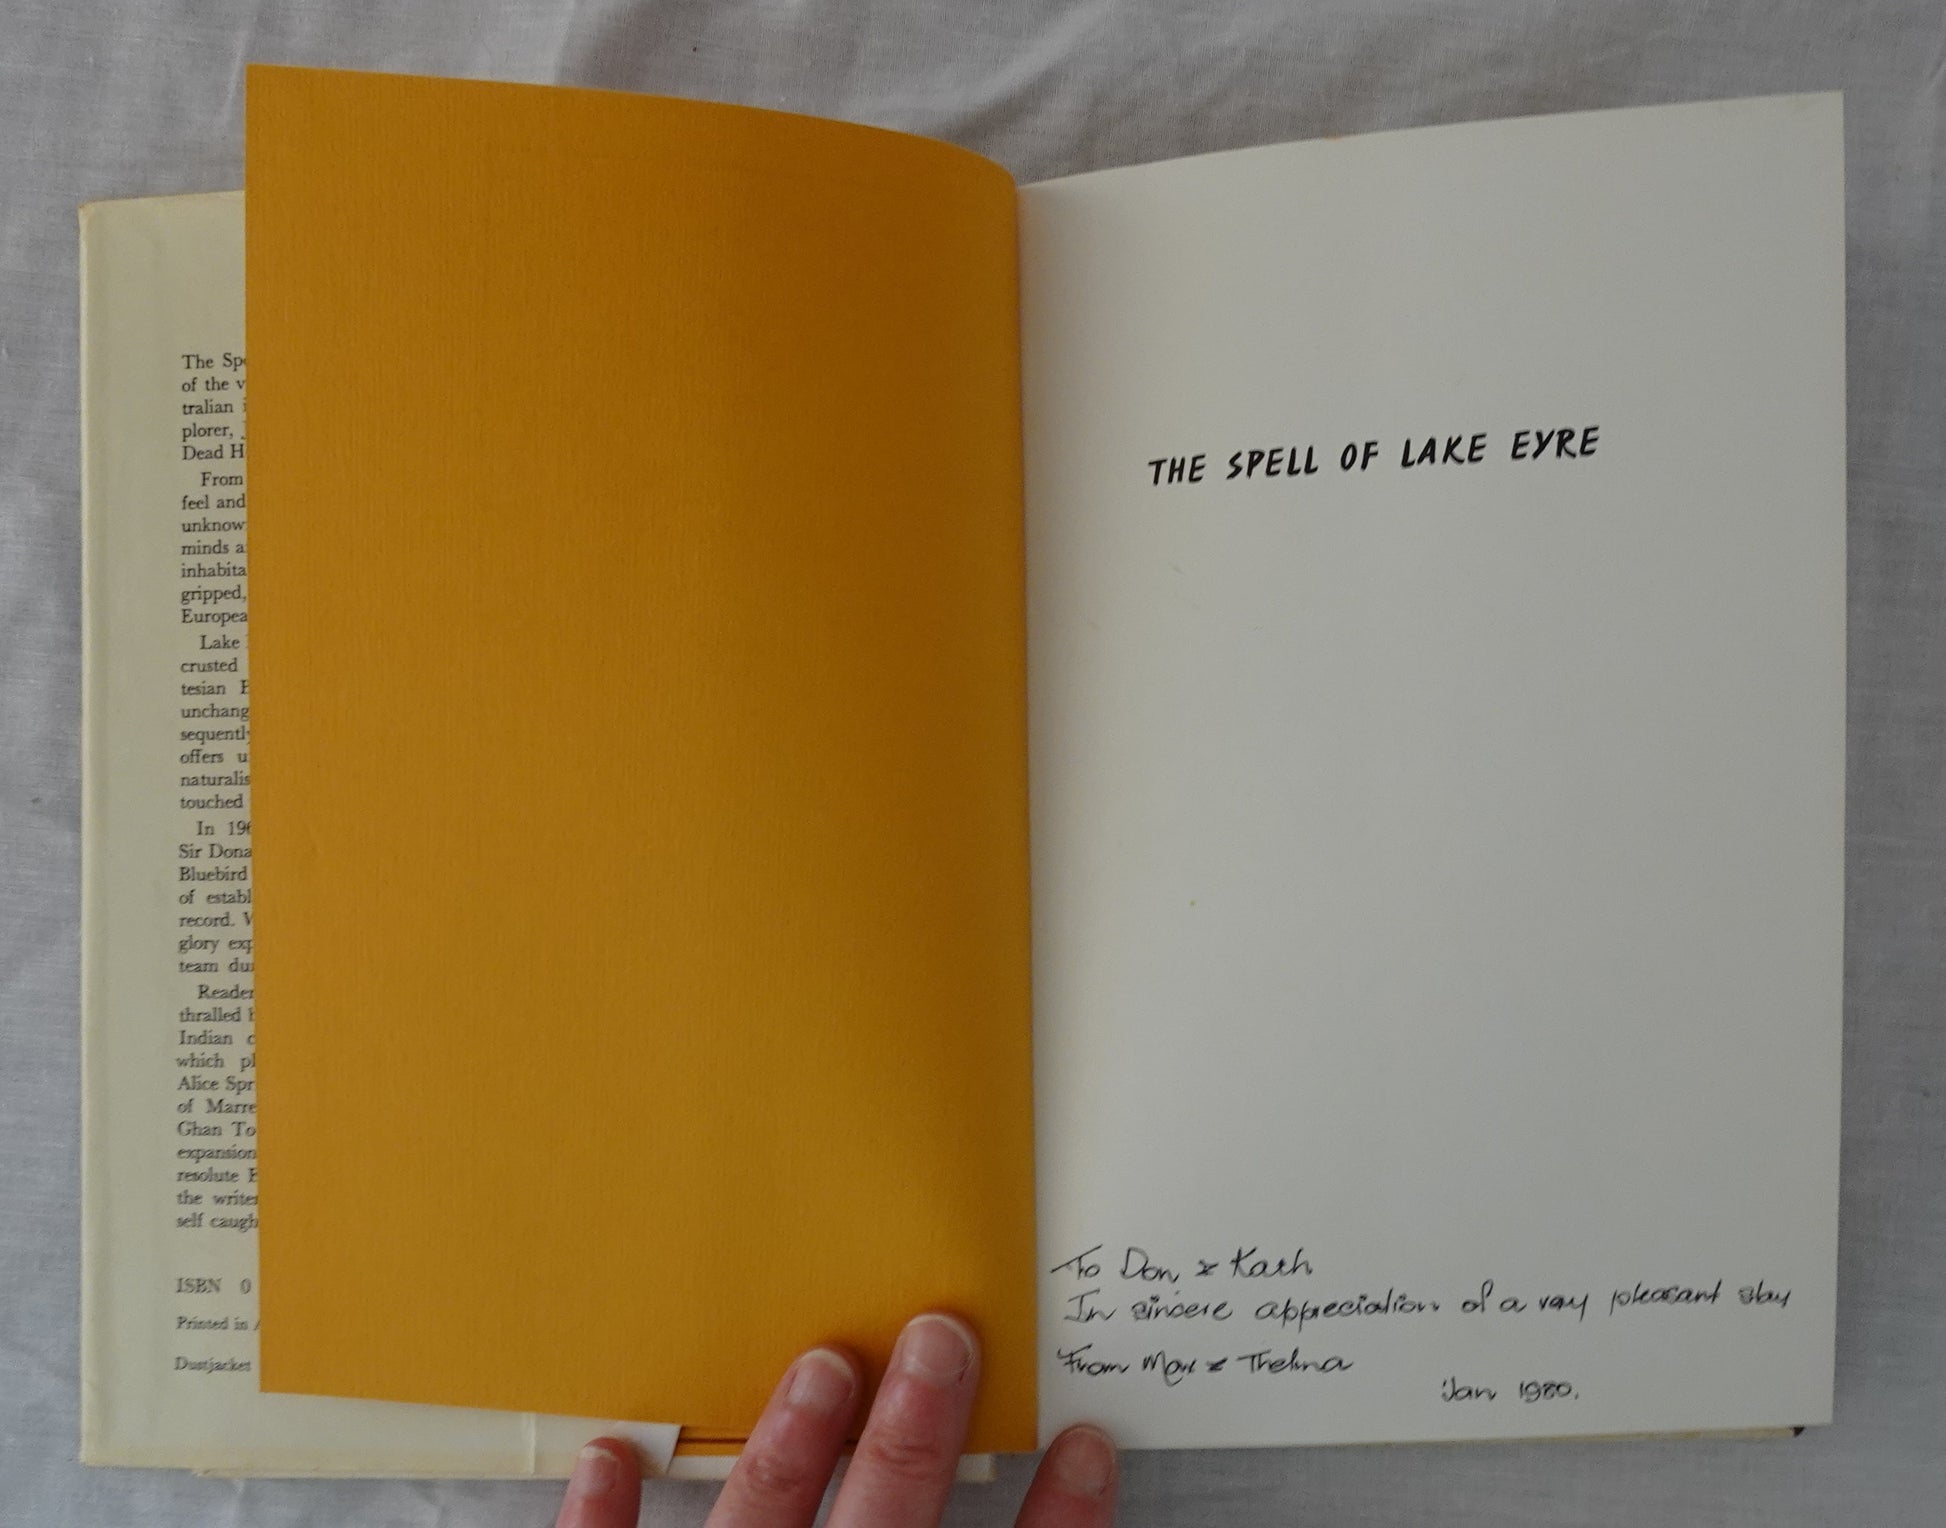 The Spe
of the v
tralian i
plorer, J
Dead H
From
feel and
unknow
minds a
inhabita
gripped,
Europea
Lake
crusted
tesian B
unchang
sequently
offers u
naturalis
touched
In 196
Sir Dona
Bluebird
of establ
record. W
glory exp
team du
Reader
thralled b
Indian c
which pl
Alice Spr
of Marre
Ghan To
expansion
resolute E
the writer
self caugh
ISBN 0
Printed in A
Dustjacket
THE SPELL OF LAKE EYRE
To Don & Kath
In sincere appreciation of a very pleasant stay
From Max & Thelma
Jan 1980.